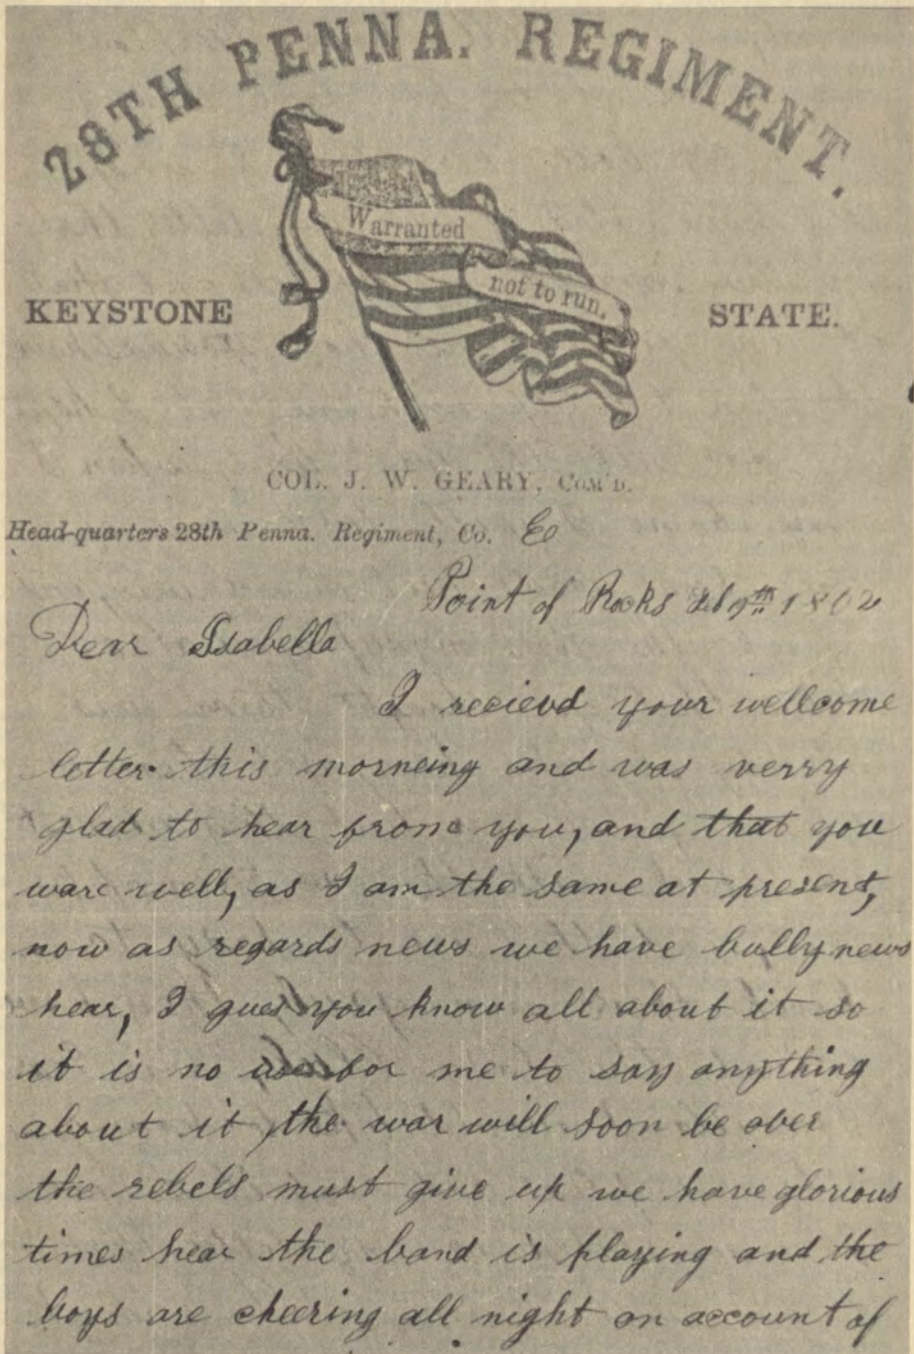 28TH PENNA. REGIMENT.
Warranted
not to run.
KEYSTONE STATE.
COL. J. W. GEARY, COM'D.
Head-quarters 28th Penna. Regiment, Co. E
Point of Rocks Feb 9th 1862
Dear Isabella
I recievd your wellcome
letter this morneing and was verry
glad to hear from you, and that you
ware well, as I am the same at present,
now as regards news we have bully news
hear, I gues you know all about it so
it is no use for me to say anything
about it, the war will soon be over
the rebels must give up we have glorious
times hear the band is playing and the
boys are cheering all night on account of